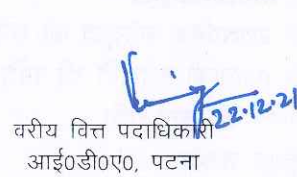 22.12.21
वरीय वित्त पदाधिकारी
आई0डी0ए0, पटना